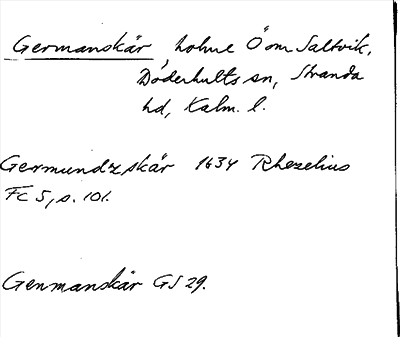 Germanskär, holme Ö om Saltvik,
Döderhults sn, Stranda
hd, Kalm. l.
Germundzskär 1634 Rhezelius
FC 5, s. 101.
Genmanskär GS 29.